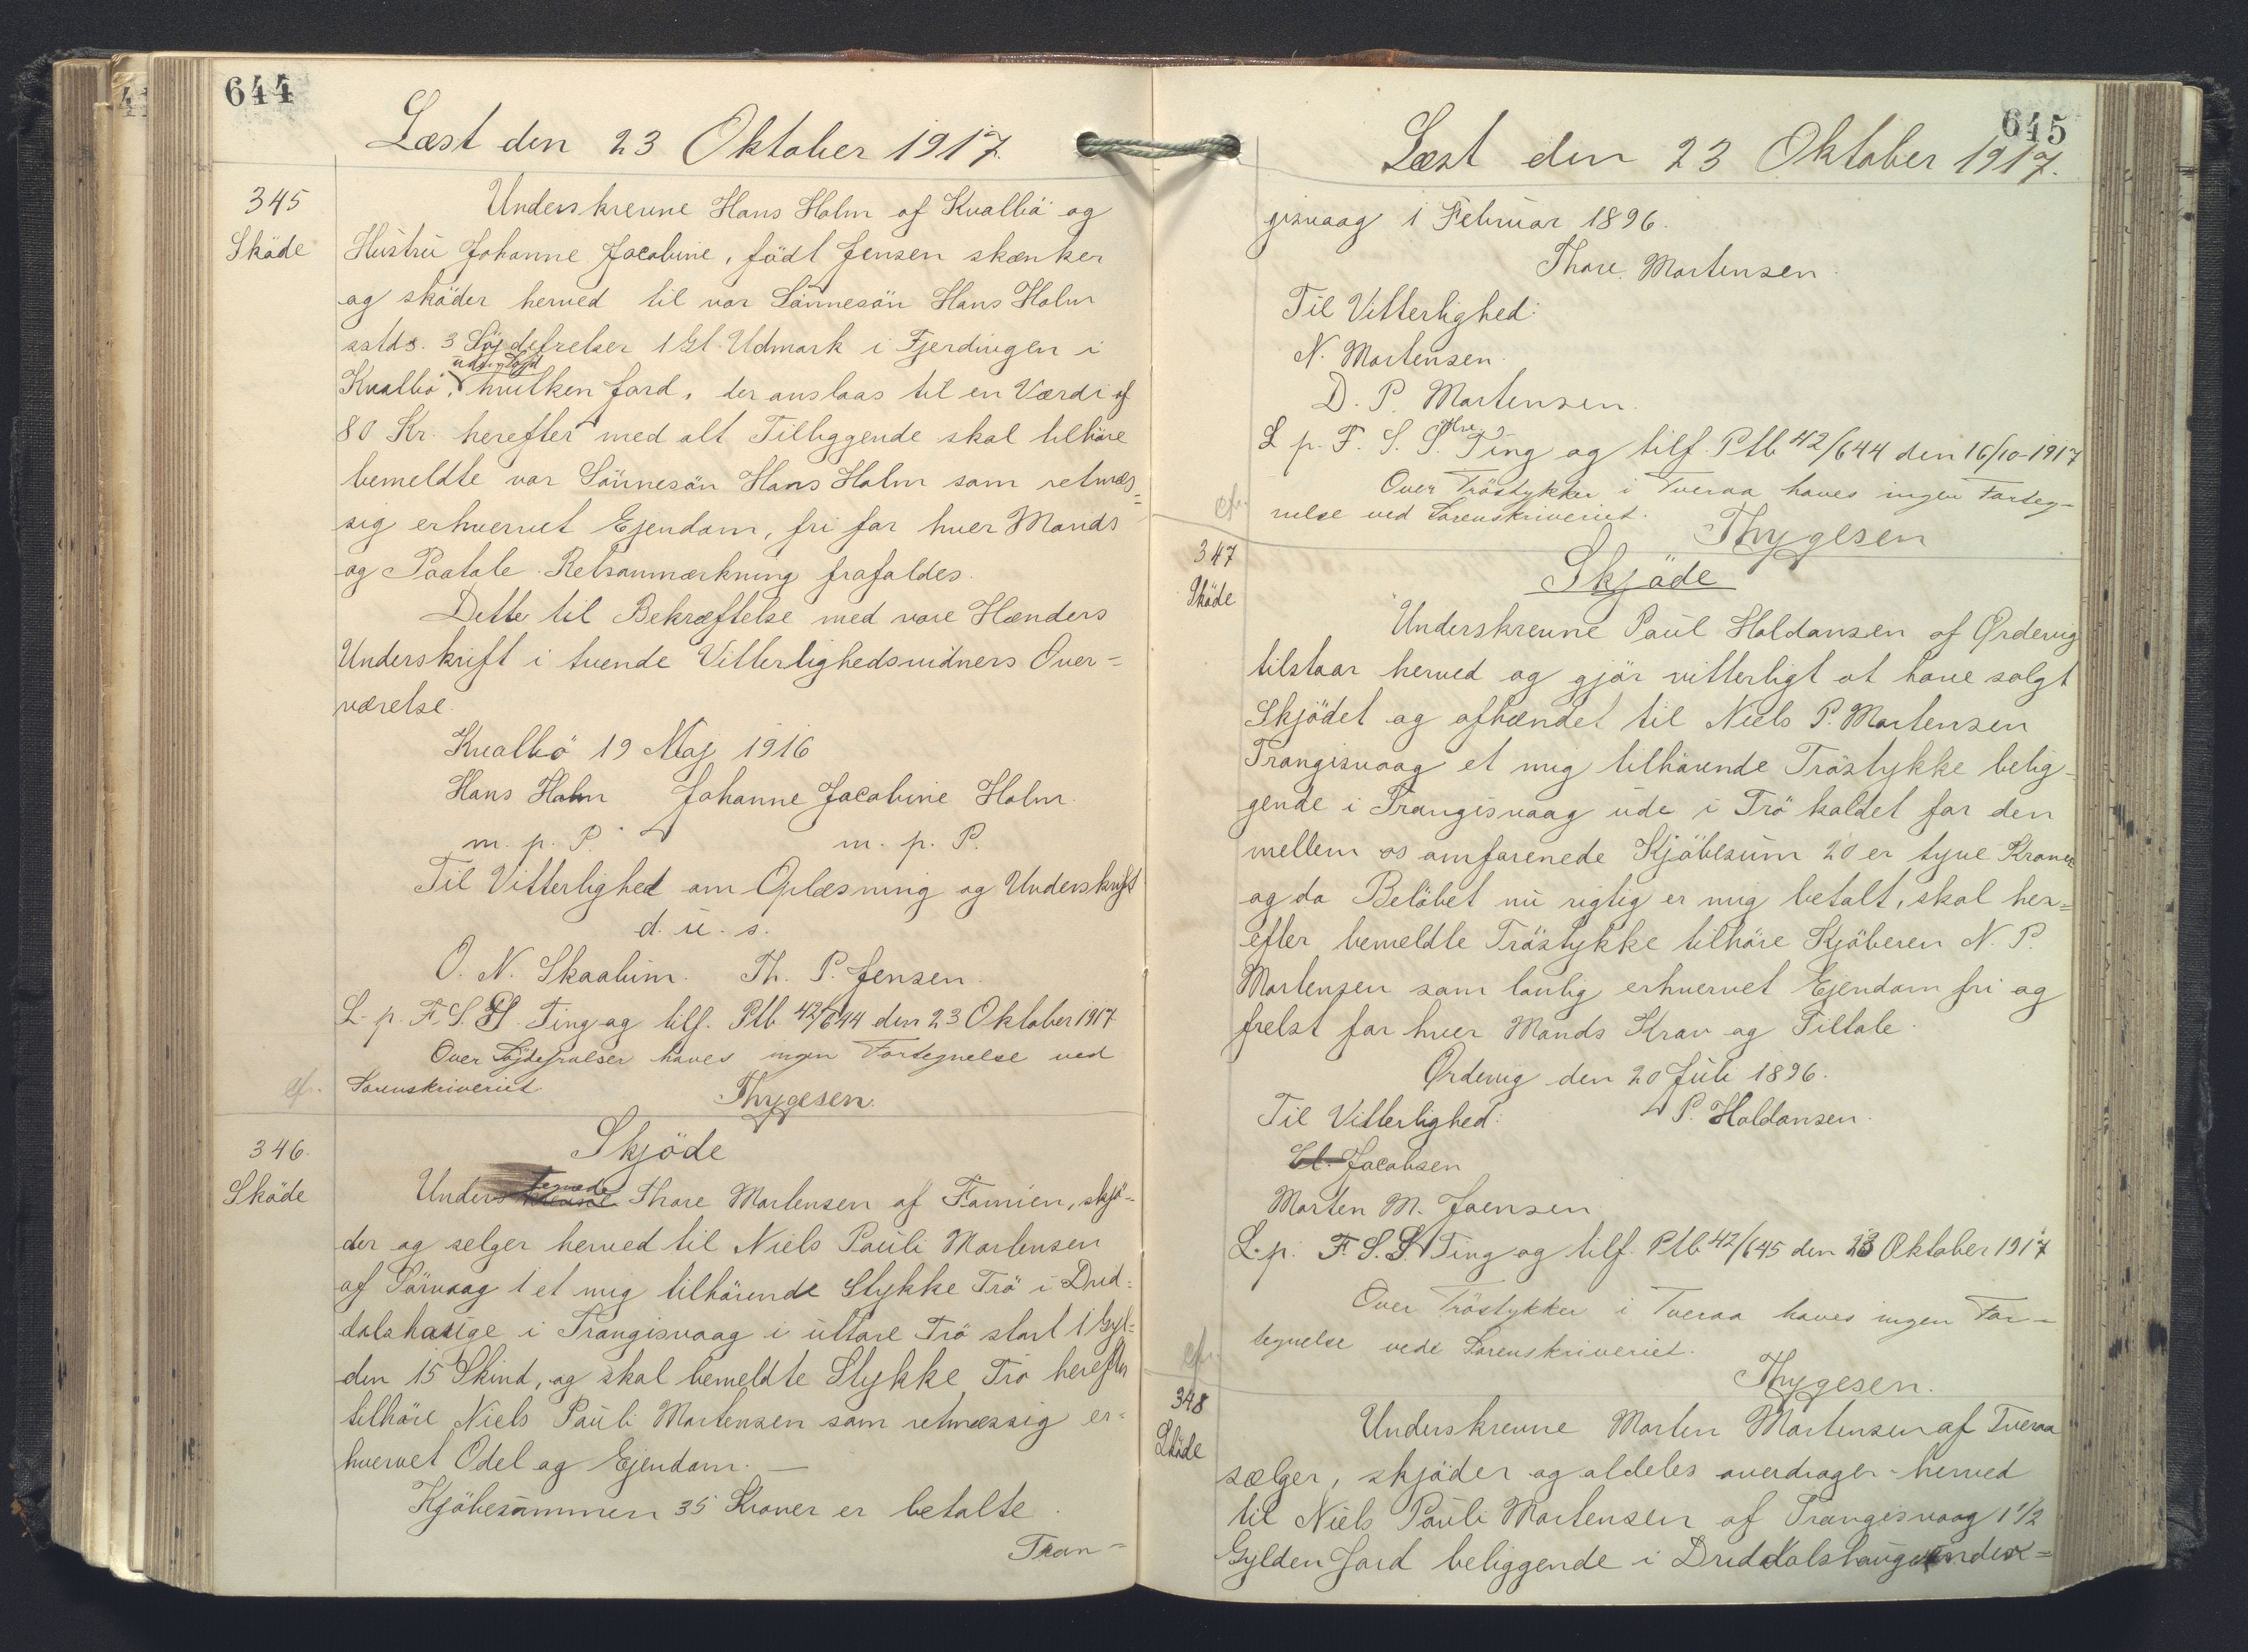 644
Læst den 23 Oktober 1917.
345
Sköde
Underskrevne Hans Holm af Kvalbö og
Hustru Johanne Jacobine, födt Jensen skænker
og sköder herved til vor Sönnesön Hans Holm
sstds. 3 Söjdefrelser 1 Gl. Udmark i Fjerdingen i
Kvalbö, hvilken Jord, der anslaas til en Værdi af
80 Kr. herefter med alt Tilliggende skal tilhöre
bemeldte vor Sönnesön Hans Holm som retmæs=
sig erhvervet Ejendom, fri for hver Mands
og Paatale. Retsanmærkning frafaldes.
Dette til Bekræftelse med vore Hænders
Underskrift i tvende Vitterlighedsvidners Over=
værelse.
Kvalbö 19 Maj 1916
Hans Holm Johanne Jacobine Holm.
m. p. P. m. p. P.
Til Vitterlighed om Oplæsning og Underskrift
d. u. s.
O. N. Skaalum. Th. P. Jensen.
L. p. F. S. S. Ting og tilf. Ptb 42/644 den 23 Oktober 1917.
Over Söjdefrælser haves ingen Fortegnelse ved
cfr. Sorenskriveriet.
Thygesen.
346.
Sköde
Skjöde
Undertegnede Thore Mortensen af Famien, skjö=
der og selger herved til Niels Pauli Mortensen
af Sörvaag 1 et mig tilhörende Stykke Trö i Drid=
dalshauge i Trangisvaag i uttare Trö stort 1 Gyl=
den 15 Skind, og skal bemeldte Stykke Trö herefter
tilhöre Niels Pauli Mortensen som retmæssig er=
hvervet Odel og Ejendom. —
Kjöbesummen 35 Kroner er betalte.
Tran=
645
Læst den 23 Oktober 1917.
gisvaag 1 Februar 1896.
Thore Mortensen.
Til Vitterlighed:
N. Mortensen.
D. P. Mortensen.
L p. F. S. S. Ting og tilf. Ptb 42/644 den 16/10-1917
Over Tröstykker i Tveraa haves ingen Forteg-
cfr. nelse ved Sorenskriveriet.
Thygesen
347
Sköde
Skjöde
Underskrevne Paul Holdansen af Ørdevig
tilstaar herved og gjör vitterligt at have solgt
Skjödet og afhændet til Niels P. Mortensen
Trangisvaag et mig tilhörende Tröstykke belig-
gende i Trangisvaag ude i Trö kaldet for den
mellem os omforenede Kjöbesum 20 er tyve Kroner
og da Belöbet nu rigtig er mig betalt, skal her=
efter bemeldte Tröstykke tilhöre Kjöberen N. P.
Mortensen som lovlig erhvervet Ejendom fri og
frelst for hver Mands Krav og Tiltale.
Ørdevig den 20 Juli 1896.
Til Vitterlighed: P. Holdansen.
Jacobsen
Morten M. Joensen
L. p. F. S. S. Ting og tilf. Ptb 42/645 den 23 Oktober 1917
Over Tröstykker i Tveraa haves ingen For-
cfr. tegnelse vede Sorenskriveriet.
Thygesen.
348
Sköde
Underskrevne Morten Mortensen af Tveraa
sælger, skjöder og aldeles overdrager herved
til Niels Pauli Mortensen af Trangisvaag 1 1/2
Gylden Jord beliggende i Driddalshauge